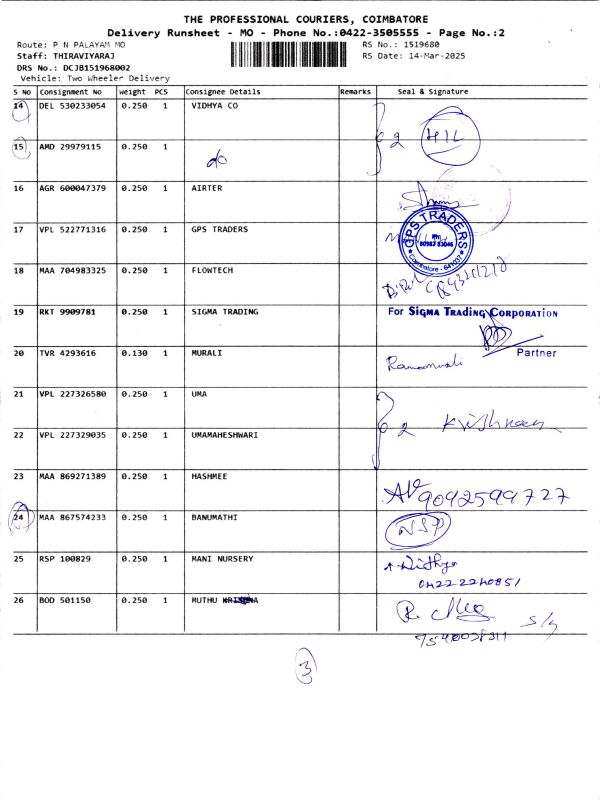 THE PROFESSIONAL COURIERS, COIMBATORE
Delivery Runsheet - MO - Phone No.:0422-3505555 - Page No.:2
Route: P N PALAYAM MO RS No.: 1519680
Staff: THIRAVIYARAJ RS Date: 14-Mar-2025
DRS No.: DCJB151968002
Vehicle: Two Wheeler Delivery
S NO Consignment No Weight PCS Consignee Details Remarks Seal & Signature
14 DEL 530233054 0.250 1 VIDHYA CO
2 HIL
15 AMD 29979115 0.250 1 do
16 AGR 600047379 0.250 1 AIRTER
17 VPL 522771316 0.250 1 GPS TRADERS GPS TRADERS Coimbatore - 641037
18 MAA 704983325 0.250 1 FLOWTECH
19 RKT 9909781 0.250 1 SIGMA TRADING For SIGMA TRADING CORPORATION
Partner
20 TVR 4293616 0.130 1 MURALI
21 VPL 227326580 0.250 1 UMA
2 Krishnan
22 VPL 227329035 0.250 1 UMAMAHESHWARI
23 MAA 869271389 0.250 1 HASHMEE 9092599727
24 MAA 867574233 0.250 1 BANUMATHI NSP
25 RSP 100829 0.250 1 MANI NURSERY
04222240851
26 BOD 501150 0.250 1 MUTHU KRISHNA
3